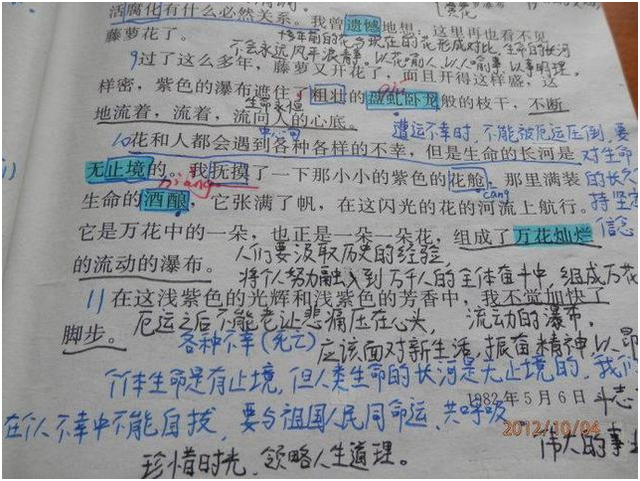 活腐化有什么必然关系。我曾遗憾地想：这里再也看不见
藤萝花了。
将年前的花与现在的花形成对比，生命的长河
不会永远风平浪静。以花喻人，以人喻事，以事明理。
9过了这么多年，藤萝又开花了，而且开得这样盛，这
样密，紫色的瀑布遮住了粗壮的盘虬卧龙般的枝干，不断
qiú
生命永恒
地流着，流着，流向人的心底。
遭运不幸时，不能被厄运压倒，要
中心句
10花和人都会遇到各种各样的不幸，但是生命的长河是
对生命
无止境的。我抚摸了一下那小小的紫色的花舱，那里满装
的长久
niàng
cāng
生命的酒酿，它张满了帆，在这闪光的花的河流上航行。
持坚定
它是万花中的一朵，也正是一朵一朵花，组成了万花灿烂
信念
的流动的瀑布。
人们要汲取历史的经验
将个人努力融入到万千人的主体奋斗中，组成万花
11在这浅紫色的光辉和浅紫色的芳香中，我不觉加快了
脚步。
厄运之后不能老让悲痛压在心头，
流动的瀑布。
各种不幸(死亡)
应该面对新生活，振奋精神以昂
个体生命是有止境，但人类生命的长河是无止境的，我们
1982年5月6日
斗志
在个人不幸中不能自拔，要与祖国人民同命运，共呼吸
2012/10/04
伟大的事业
珍惜时光，领略人生道理。